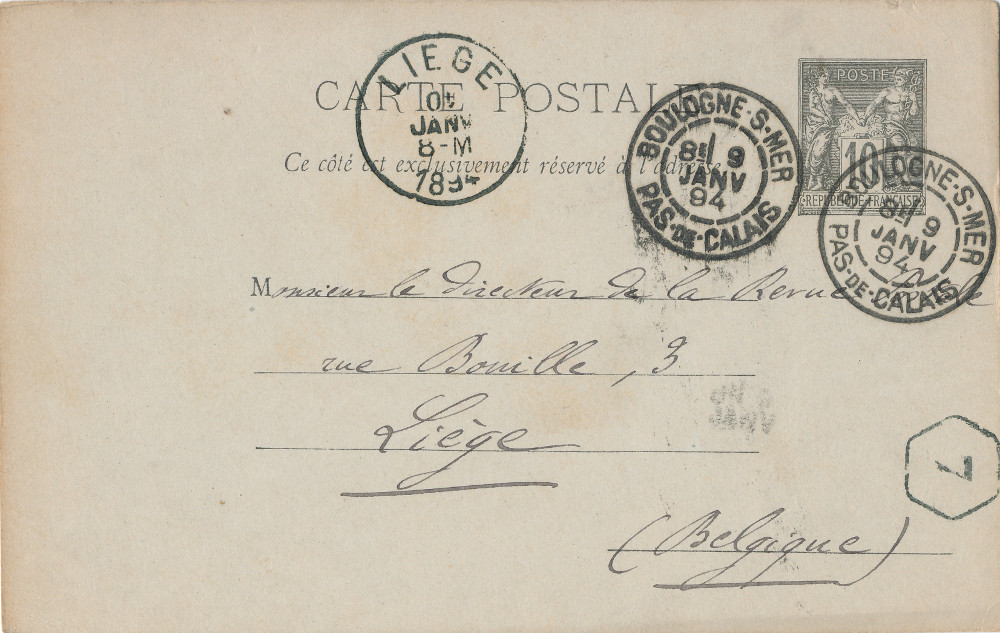 CARTE POSTALE
Ce côté est exclusivement réservé à l'adresse.
LIEGE
10
JANV
8-M
1894
BOULOGNE-S-MER
8E 9
JANV
94
PAS-DE-CALAIS
POSTE
10
REPUBLIQUE FRANÇAISE
BOULOGNE-S-MER
8E 9
JANV
94
PAS-DE-CALAIS
Monsieur le directeur de la Revue
rue Bouille, 3
Liège
(Belgique)
7